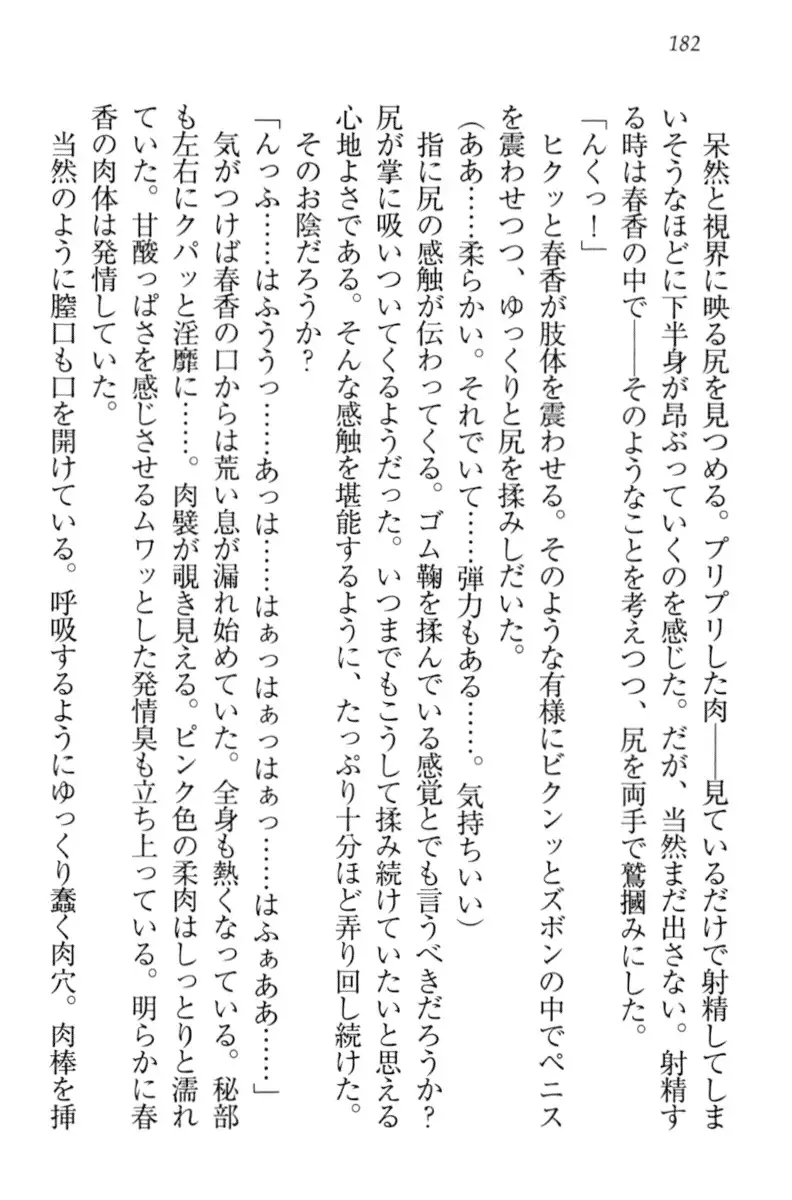 182
呆然と視界に映る尻を見つめる。プリプリした肉――見ているだけで射精してしま
いそうなほどに下半身が昂ぶっていくのを感じた。だが、当然まだ出さない。射精す
る時は春香の中で――そのようなことを考えつつ、尻を両手で鷲摑みにした。
「んくっ！」
ヒクッと春香が肢体を震わせる。そのような有様にビクンッとズボンの中でペニス
を震わせつつ、ゆっくりと尻を揉みしだいた。
（ああ……柔らかい。それでいて……弾力もある……。気持ちいい）
指に尻の感触が伝わってくる。ゴム鞠を揉んでいる感覚とでも言うべきだろうか？
尻が掌に吸いついてくるようだった。いつまでもこうして揉み続けていたいと思える
心地よさである。そんな感触を堪能するように、たっぷり十分ほど弄り回し続けた。
そのお陰だろうか？
「んっふ……はふううっ……あっは……はぁっはぁっはぁっ……はふぁああ……」
気がつけば春香の口からは荒い息が漏れ始めていた。全身も熱くなっている。秘部
も左右にクパッと淫靡に……。肉襞が覗き見える。ピンク色の柔肉はしっとりと濡れ
ていた。甘酸っぱさを感じさせるムワッとした発情臭も立ち上っている。明らかに春
香の肉体は発情していた。
当然のように膣口も口を開けている。呼吸するようにゆっくり蠢く肉穴。肉棒を挿